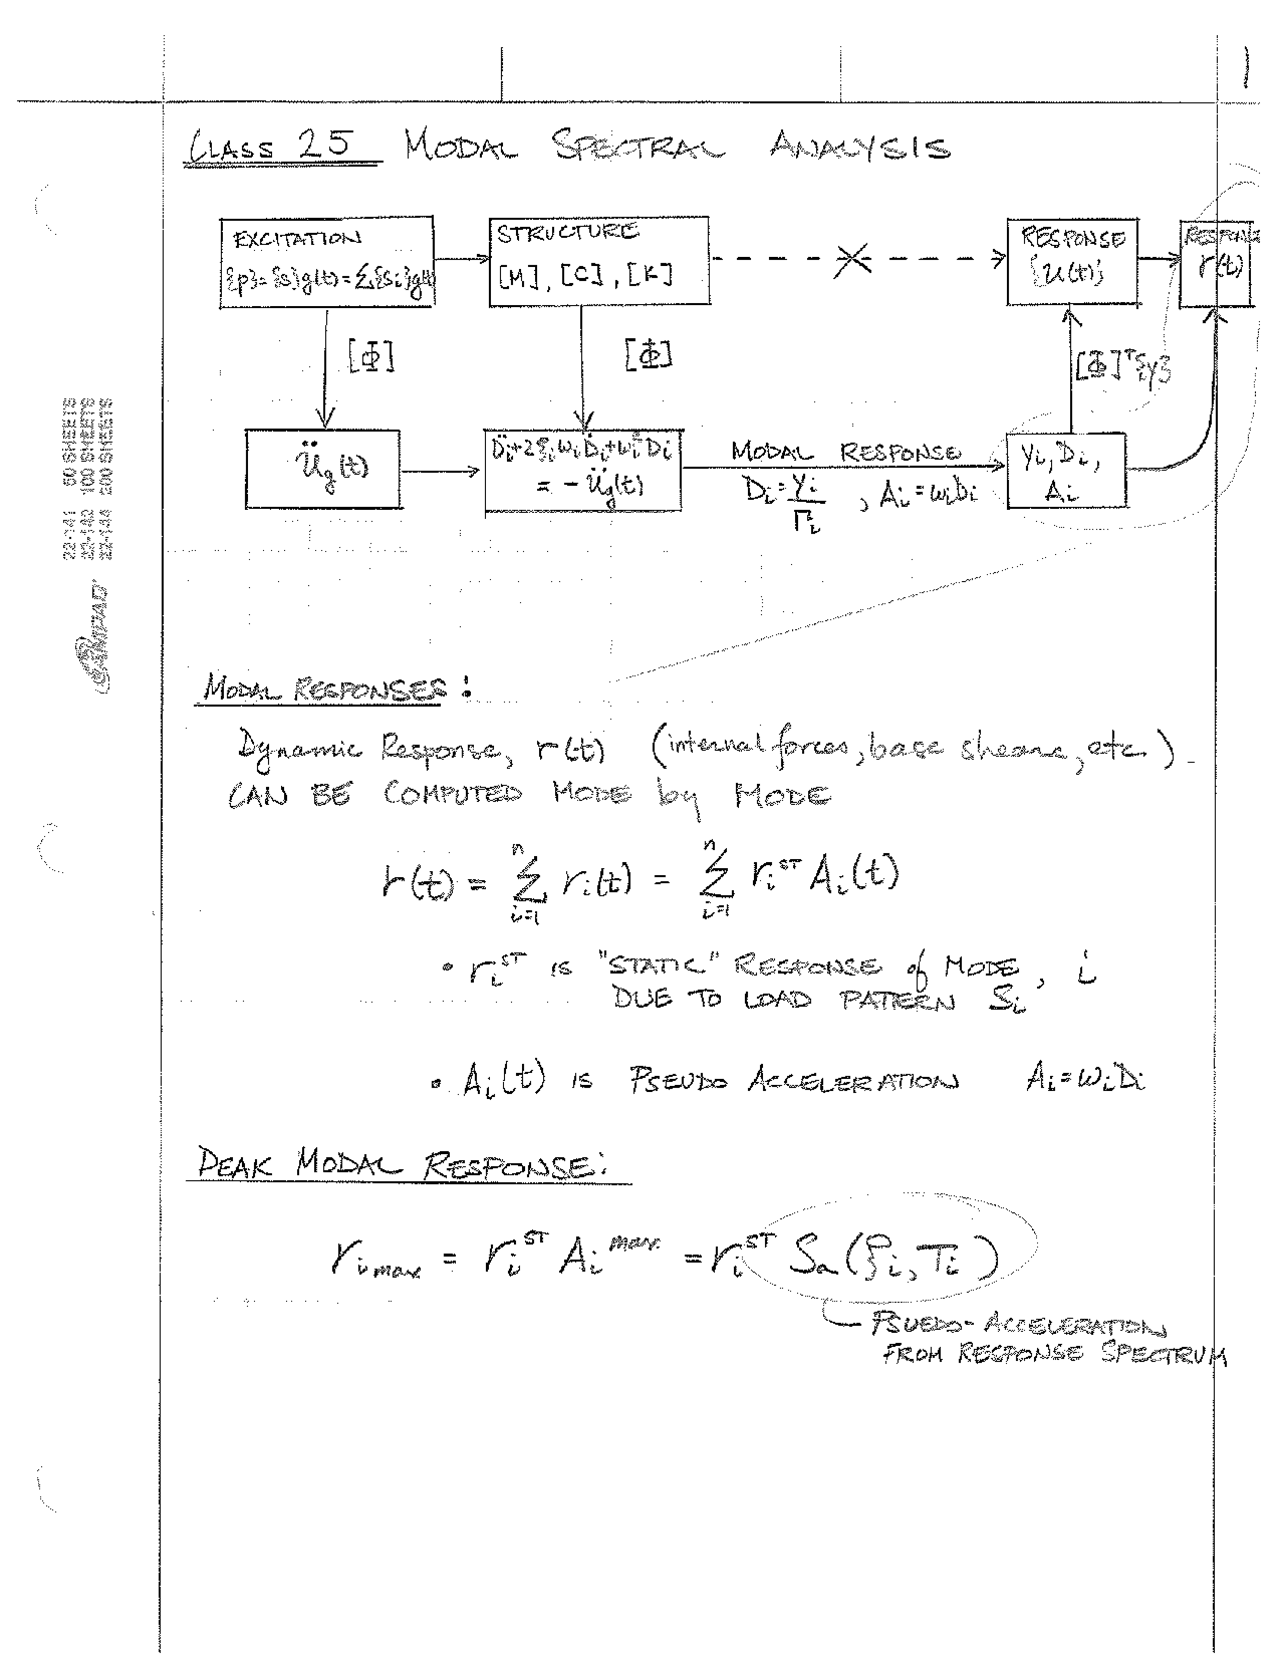 1
CLASS 25 MODAL SPECTRAL ANALYSIS
EXCITATION
{p}={s}g(t)=Σ{si}g(t)
STRUCTURE
[M], [C], [K]
RESPONSE
{u(t)}
RESPONSE
r(t)
[Φ]
[Φ]
[Φ]ᵀ{y}
üg(t)
D̈i+2ξiωiḊi+ωi²Di
= -üg(t)
MODAL RESPONSE
Di=Yi/Γi , Ai=ωiDi
Yi, Di,
Ai
22-141 50 SHEETS
22-142 100 SHEETS
22-144 200 SHEETS
AMPAD
MODAL RESPONSES:
Dynamic Response, r(t) (internal forces, base shears, etc.)
CAN BE COMPUTED MODE by MODE
r(t) = Σ_{i=1}^{n} ri(t) = Σ_{i=1}^{n} ri^ST Ai(t)
• ri^ST IS "STATIC" RESPONSE of MODE, i
DUE TO LOAD PATTERN Si
• Ai(t) IS PSEUDO ACCELERATION Ai=ωiDi
PEAK MODAL RESPONSE:
ri max = ri^ST Ai^max = ri^ST Sa(ξi, Ti)
PSUEDO-ACCELERATION
FROM RESPONSE SPECTRUM